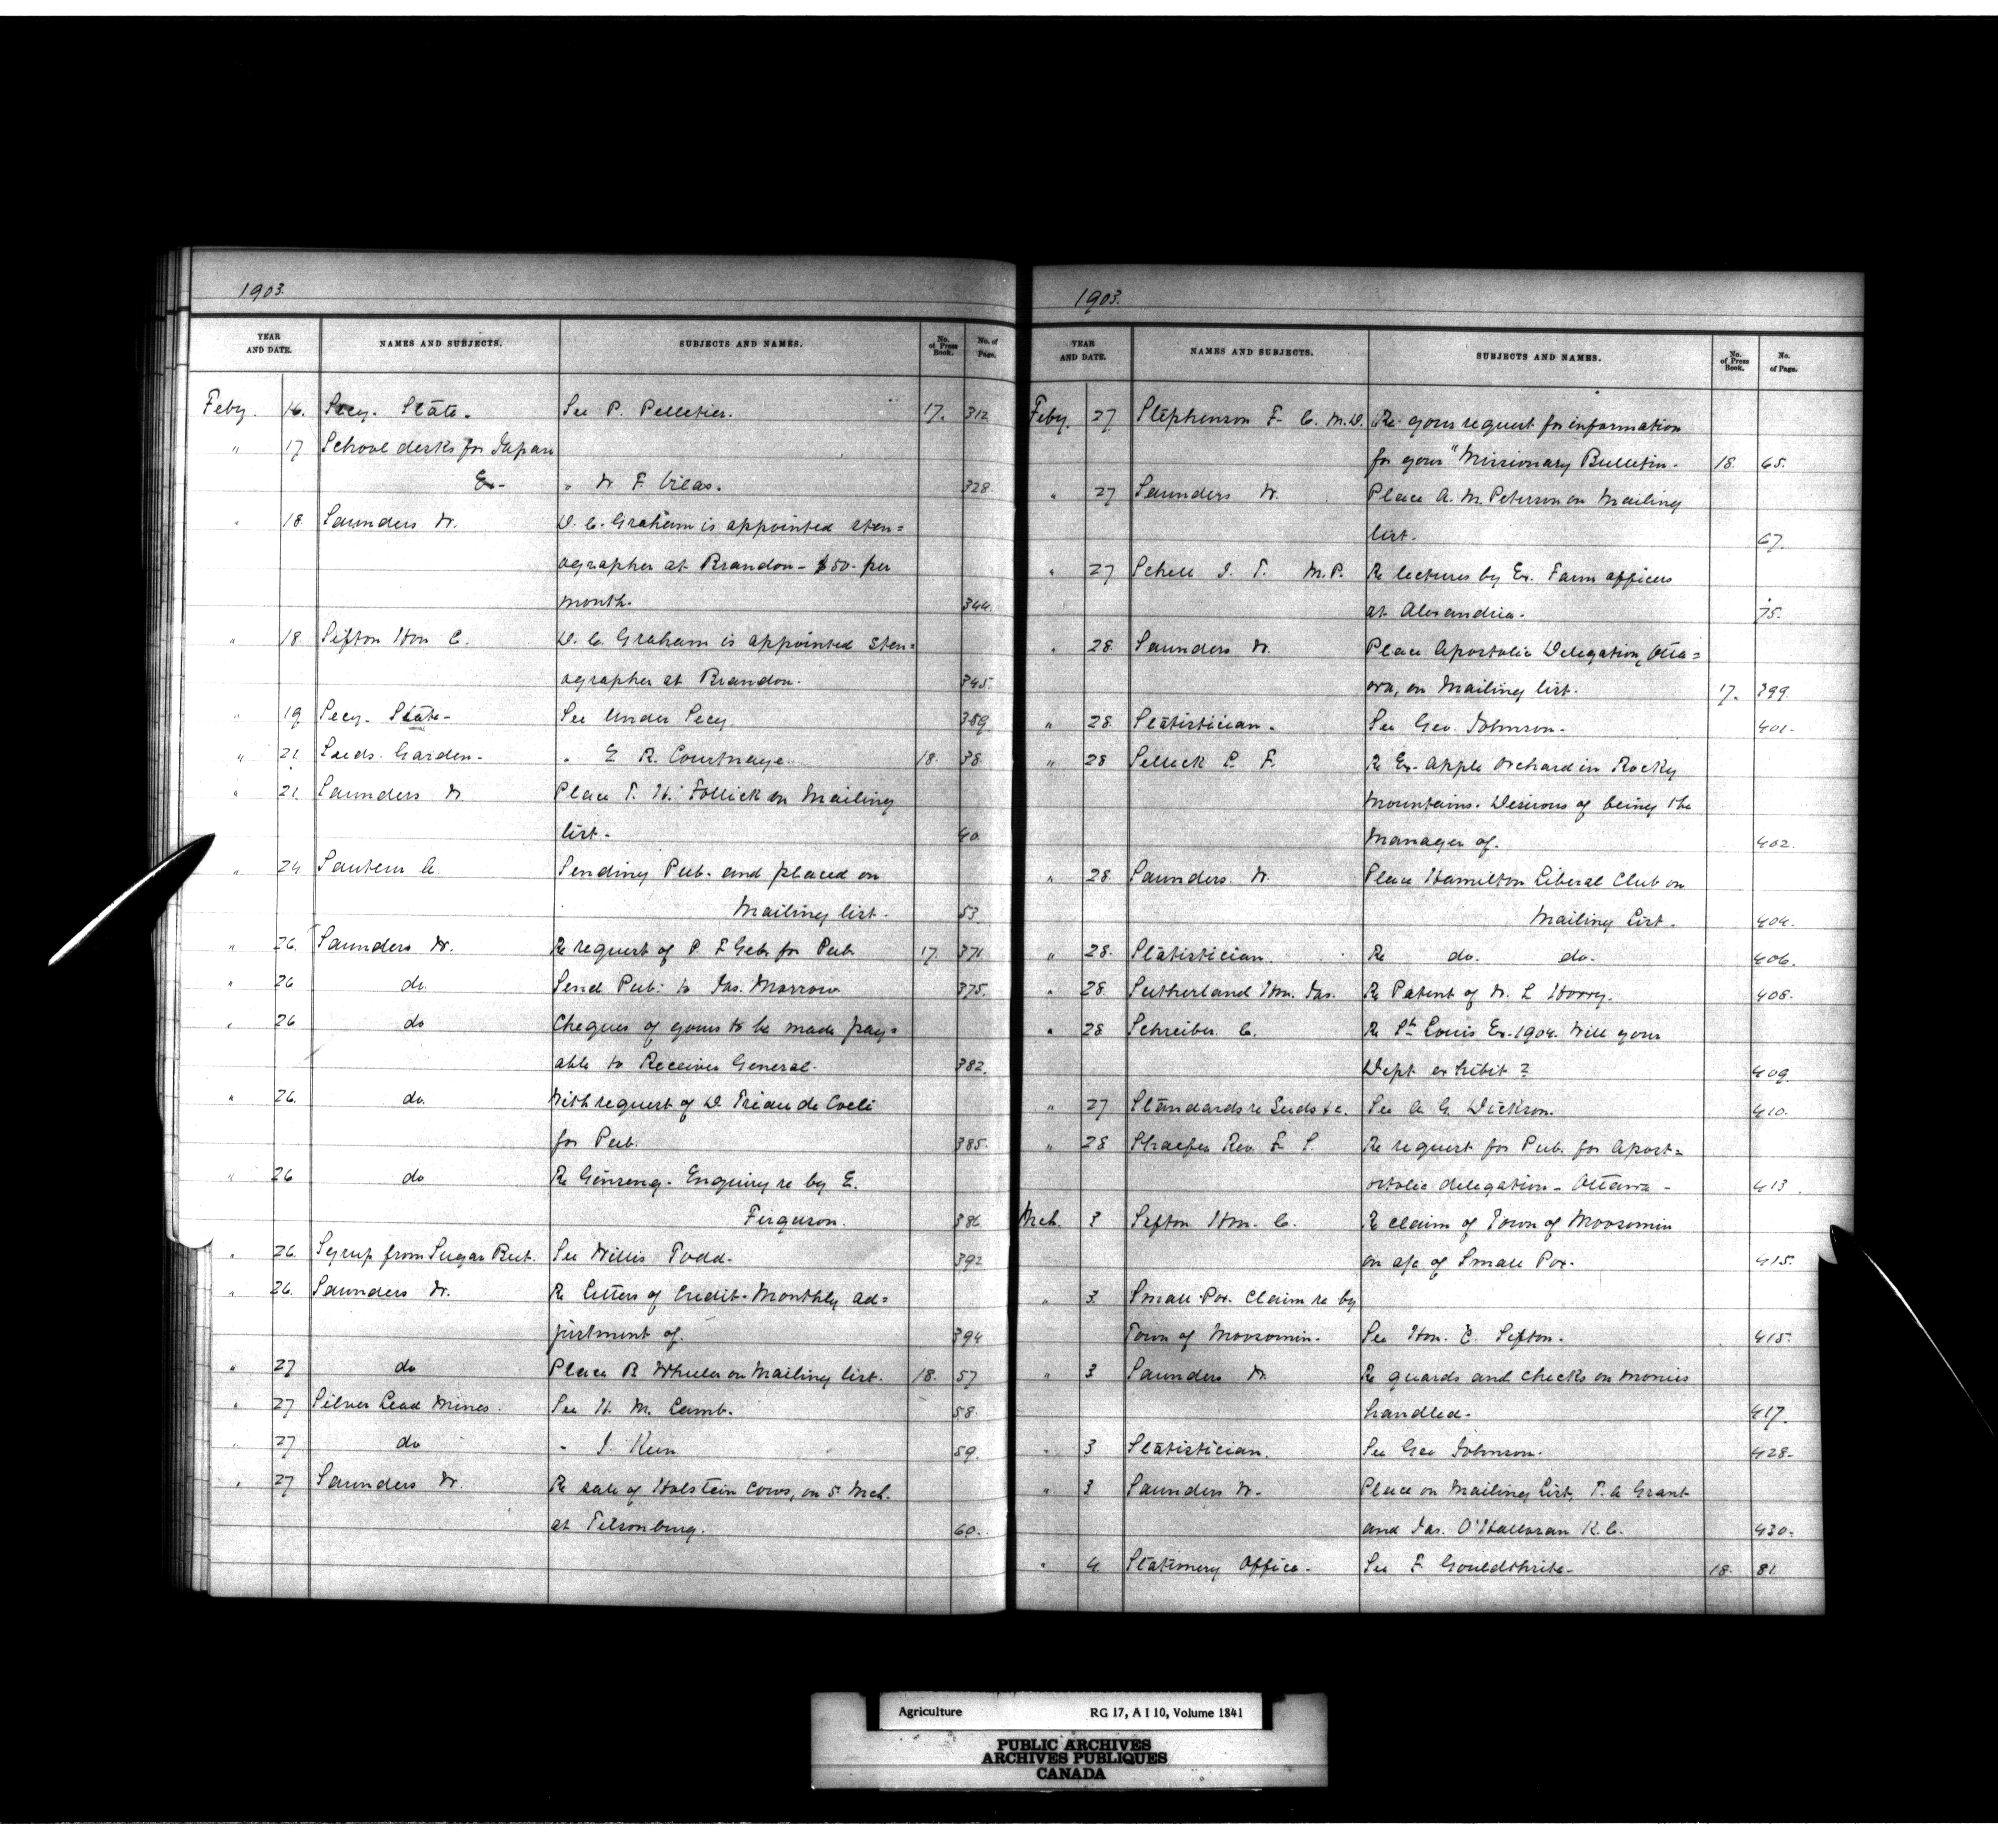 1903.
YEAR AND DATE. NAMES AND SUBJECTS. SUBJECTS AND NAMES. No. of Press Book. No. of Page.
Feby. 16. Secy. State. See P. Pelletier. 17. 312
" 17 School desks for Japan
Ex- " W. F. Vilas. 328
" 18 Saunders W. D. C. Graham is appointed sten=
ographer at Brandon - $50- per
month. 344.
" 18 Sifton Hon C. D. C. Graham is appointed sten=
ographer at Brandon. 345.
" 19 Secy. State- See Under Secy. 359
" 21. Seeds. Garden- " E R. Courtnaye. 18. 38
" 21. Saunders W. Place T. H. Follick on Mailing
list- 40.
" 24 A. Sending Pub. and placed on
Mailing list. 53
" 26. Saunders W. Re request of P. F for Pub. 17. 371
" 26 do. Send Pub. to Jas. Morrow 375.
" 26 do Cheques of yours to be made pay=
able to Receiver General. 382.
" 26. do. With request of D de Coeli
for Pub. 385.
" 26 do Re Ginseng. Enquiry re by E.
Ferguson. 386
" 26. Syrup from Sugar Beet. See Willis Todd. 392
" 26. Saunders W. Re Letters of Credit-Monthly ad=
justment of. 394
" 27 do Place B Wheeler on Mailing list. 18. 57
" 27 Silver Lead Mines. See H. M. Lamb. 58.
" 27 do " J. Keen 59.
" 27 Saunders W. Re sale of Holstein Cows, on 5 Mch.
at Tilsonburg. 60.
1903.
YEAR AND DATE. NAMES AND SUBJECTS. SUBJECTS AND NAMES. No. of Press Book. No. of Page.
Feby. 27. Stephenson F. C. M.D. Re your request for information
for your "Missionary Bulletin. 18. 65.
" 27 Saunders W. Place A. M. Peterson on Mailing
list. 67.
" 27 Schell J. T. M.P. Re lectures by Ex. Farm officers
at Alexandria. 75.
" 28. Saunders W. Place Apostolic Delegation, Otta=
wa, on Mailing list. 17. 399.
" 28 Statistician. See Geo. Johnson. 401.
" 28 Selleck P. F. Re Ex. Apple Orchard in Rocky
Mountains. Desirous of being the
Manager of. 402.
" 28. Saunders. W. Place Hamilton Liberal Club on
Mailing List. 404.
" 28. Statistician. Re do. do. 406.
" 28. Sutherland Hon. Jas. Re Patent of W. L 408.
" 28 Schreiber. C. Re St. Louis Ex-1904. Will your
Dept exhibit? 409.
" 27 Standards re Seeds &c. See A. G. Dickson. 410.
" 28 Rev. F. S. Re request for Pub. for Apost=
ostolic delegation- Ottawa- 413.
Mch. 3 Sifton Hon. C. Re claim of Town of Moosomin
on a/c of Small Pox. 415.
" 3. Small-Pox. Claim re by
Town of Moosomin. See Hon. C. Sifton. 415.
" 3 Saunders W. Re guards and checks on monies
handled. 417.
" 3 Statistician. See Geo Johnson. 428.
" 3 Saunders W. Place on Mailing List, T. A Grant
and Jas. O'Halloran K.C. 430.
" 4. Stationery Office. See F Gouldthrite- 18. 81.
Agriculture RG 17, A I 10, Volume 1841
PUBLIC ARCHIVES
ARCHIVES PUBLIQUES
CANADA